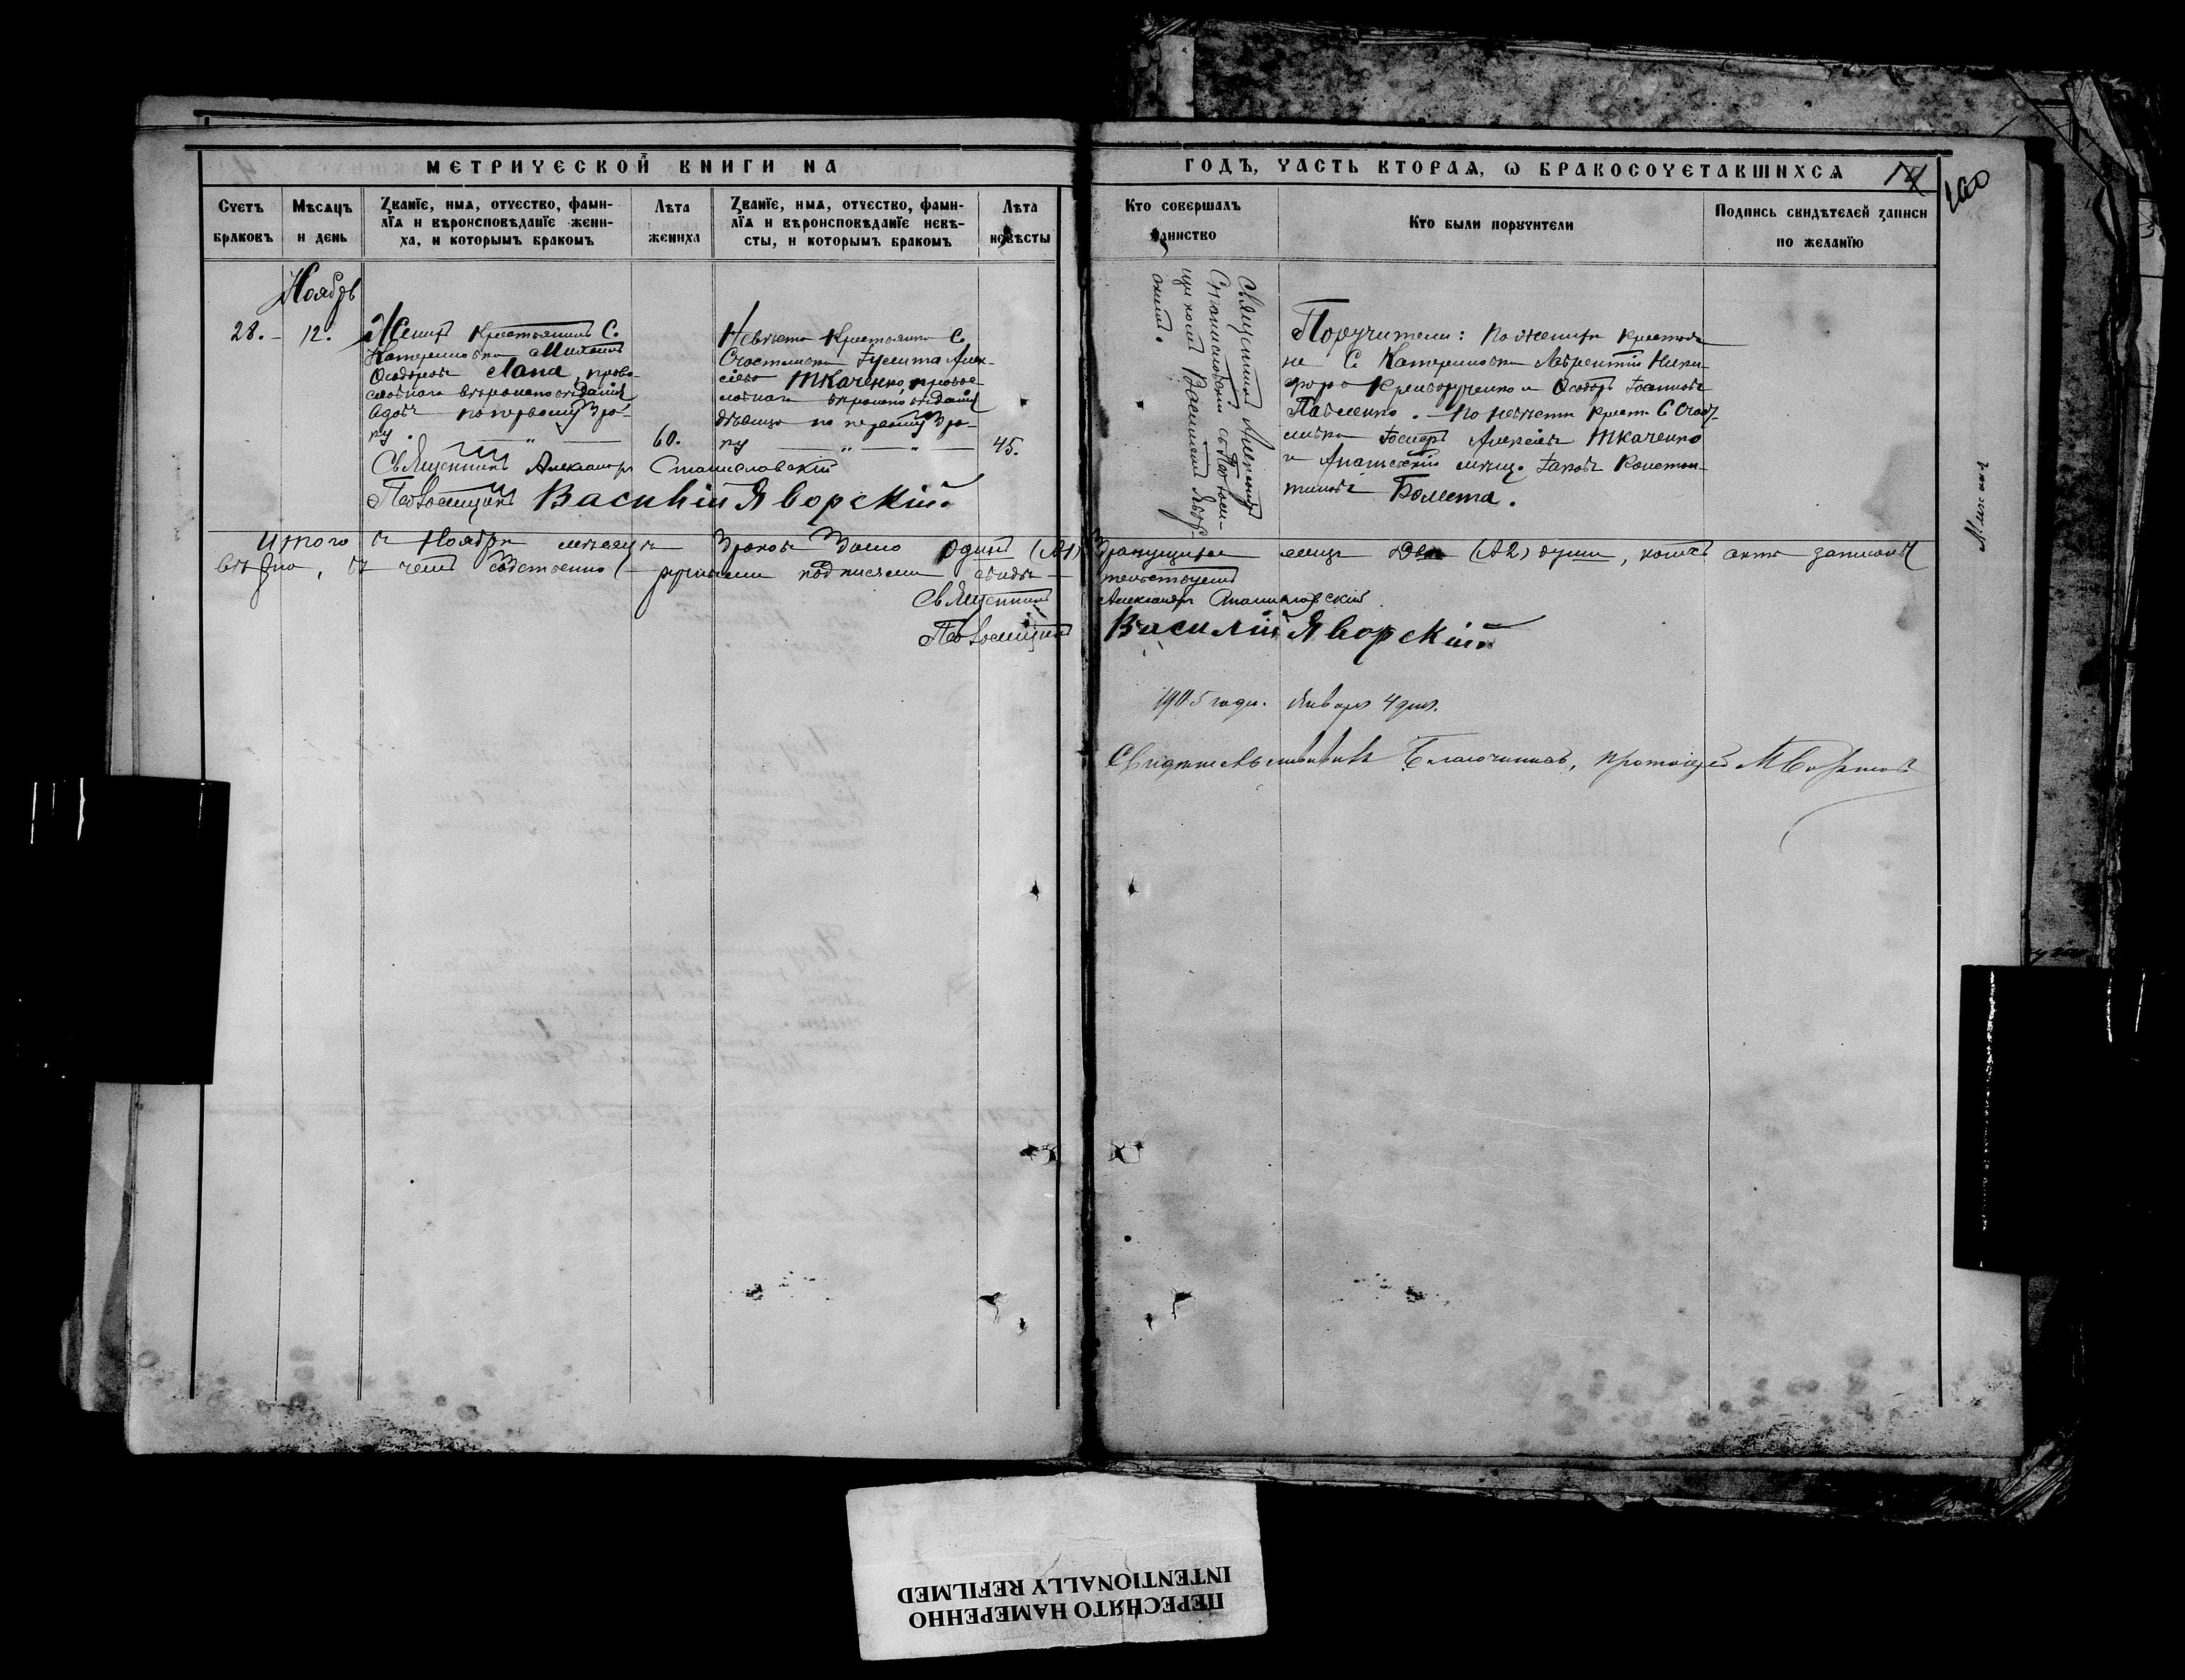 МЕТРИЧЕСКОЙ КНИГИ НА
ГОДЪ, ЧАСТЬ ВТОРАѦ, Ѡ БРАКОСОЧЕТАВШИХСѦ
14
Счетъ браковъ
Мѣсяцъ и день
Званїе, имя, отчество, фами-
лїя и вѣроисповѣданїе жени-
ха, и которымъ бракомъ
Лѣта жениха
Званїе, имя, отчество, фами-
лїя и вѣроисповѣданїе невѣ-
сты, и которымъ бракомъ
Лѣта невѣсты
Кто совершалъ таинство
Кто были поручители
Подпись свидѣтелей записи
по желанїю
Ноябрь
28.
12.
Женихъ Крестьянинъ С.
Катериновки Михаилъ
Ѳеодоровъ Лапа, право-
славнаго вѣроисповѣданія
вдовъ по первому бра-
ку.
60.
Невѣста Крестьянка С.
Счастливки Іулита Алек-
сіева Ткаченко, право-
славнаго вѣроисповѣданія
дѣвица по первому бра-
ку
45.
Священникъ Александръ
Станиславскій съ Псаломщи-
комъ Василіемъ Явор-
скимъ.
Поручители: По женихѣ крестья-
не С. Катериновки Лаврентій Ники-
форо Криворученко и Ѳеодоръ Іоанновъ
Павленко. По невѣстѣ крест. С. Счаст-
ливки Алексіевъ Ткаченко
и мѣщ. Іаковъ Констан-
тиновъ
Священникъ Александръ Станиславскій
Псаломщикъ Василій Яворскій.
Итого въ Ноябрѣ мѣсяцѣ браковъ было Одинъ (№1) Бракующихся лицъ Два (№2) души, коихъ акты записаны
вѣрно, въ чемъ собственно-ручными подписями свидѣ-тельствуемъ
Священникъ Александръ Станиславскій
Псаломщикъ Василій Яворскій.
1905 года. Января 4 дня.
Свидѣтельствовалъ Благочинный, протоіерей
ПЕРЕСНЯТО НАМЕРЕННО
INTENTIONALLY REFILMED